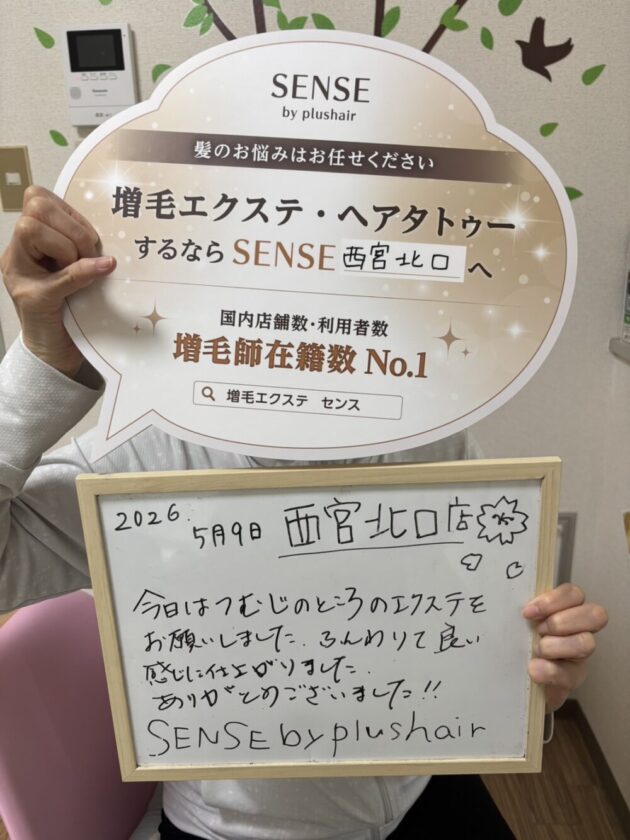 SENSE
by plushair
髪のお悩みはお任せください
増毛エクステ・ヘアタトゥー
するなら SENSE 西宮北口 へ
国内店舗数・利用者数
増毛師在籍数 No.1
増毛エクステ センス
2026 5月9日 西宮北口店
今日はつむじのところのエクステを
お願いしました. ふんわりて良い
感じに仕上がりました.
ありがとのございました!!
SENSE by plushair
Panasonic